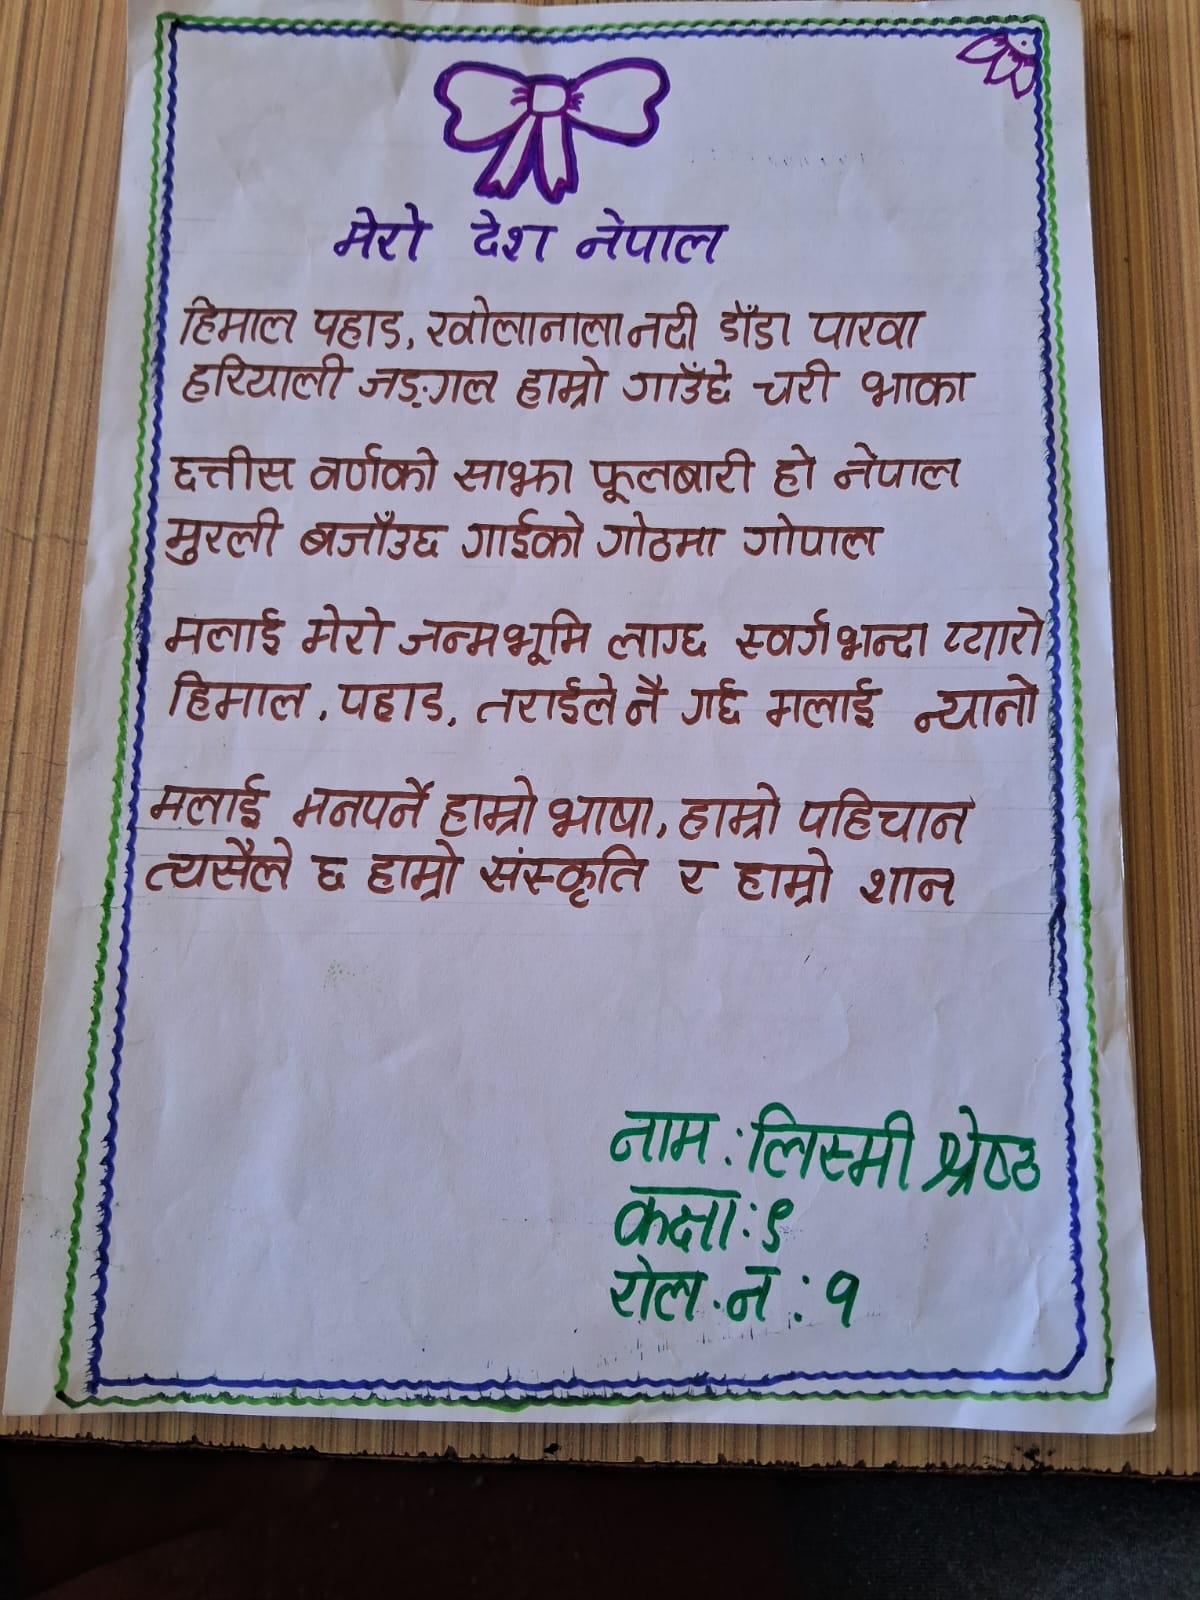 मेरो देश नेपाल
हिमाल पहाड, खोलानाला नदी डाँडा पाखा
हरियाली जङ्गल हाम्रो गाउँछे चरी भाका
छत्तीस वर्णको साझा फूलबारी हो नेपाल
मुरली बजाँउछ गाईको गोठमा गोपाल
मलाई मेरो जन्मभूमि लाग्छ स्वर्गभन्दा प्यारो
हिमाल, पहाड, तराईले नै गर्छ मलाई न्यानो
मलाई मनपर्ने हाम्रो भाषा, हाम्रो पहिचान
त्यसैले छ हाम्रो संस्कृति र हाम्रो शान
नाम : लिस्मी श्रेष्ठ
कक्षा : ९
रोल . न : १